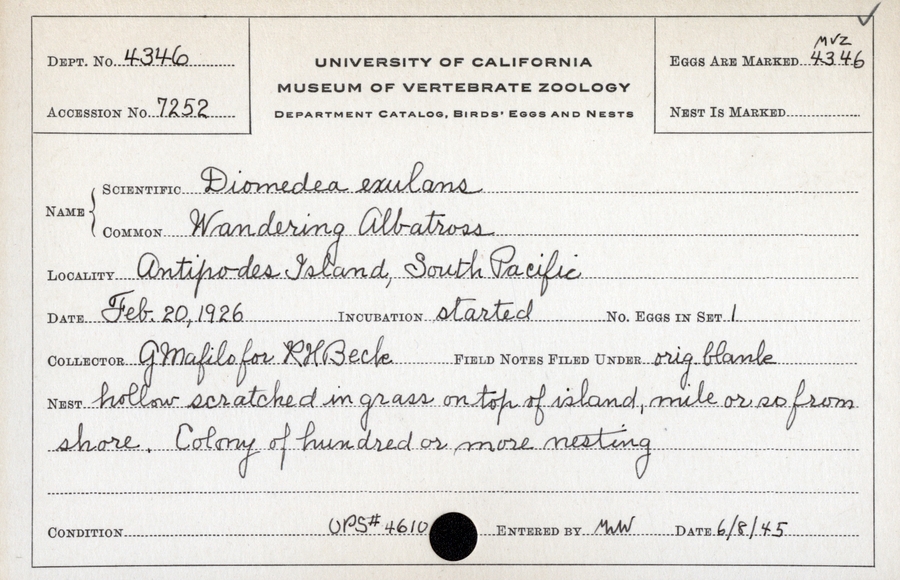 DEPT. No. 4346
ACCESSION No. 7252
UNIVERSITY OF CALIFORNIA
MUSEUM OF VERTEBRATE ZOOLOGY
DEPARTMENT CATALOG, BIRDS' EGGS AND NESTS
MVZ
EGGS ARE MARKED 4346
NEST IS MARKED
NAME
SCIENTIFIC Diomedea exulans
COMMON Wandering Albatross
LOCALITY Antipodes Island, South Pacific
DATE Feb. 20, 1926 INCUBATION started No. EGGS IN SET 1
COLLECTOR G Mafilo for RH Beck FIELD NOTES FILED UNDER orig. blank
NEST hollow scratched in grass on top of island, mile or so from
shore. Colony of hundred or more nesting
CONDITION OPS# 4610 ENTERED BY MWW DATE 6/8/45